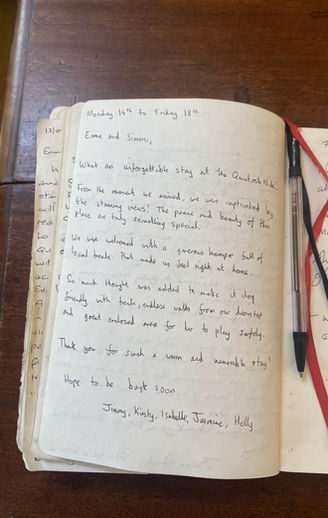 Monday 14th to Friday 18th
Emma and Simon,
What an unforgettable stay at the Quantock Hills!
From the moment we arrived, we were captivated by
the stunning views! The peace and beauty of this
place are truly something special.
We were welcomed with a generous hamper full of
local treats that made us feel right at home.
So much thought was added to make it dog
friendly with treats, endless walks from our doorstep
and great enclosed area for her to play safely.
Thank you for such a warm and memorable stay!
Hope to be back soon.
Jimmy, Kirsty, Isabelle, Jasmine, Holly